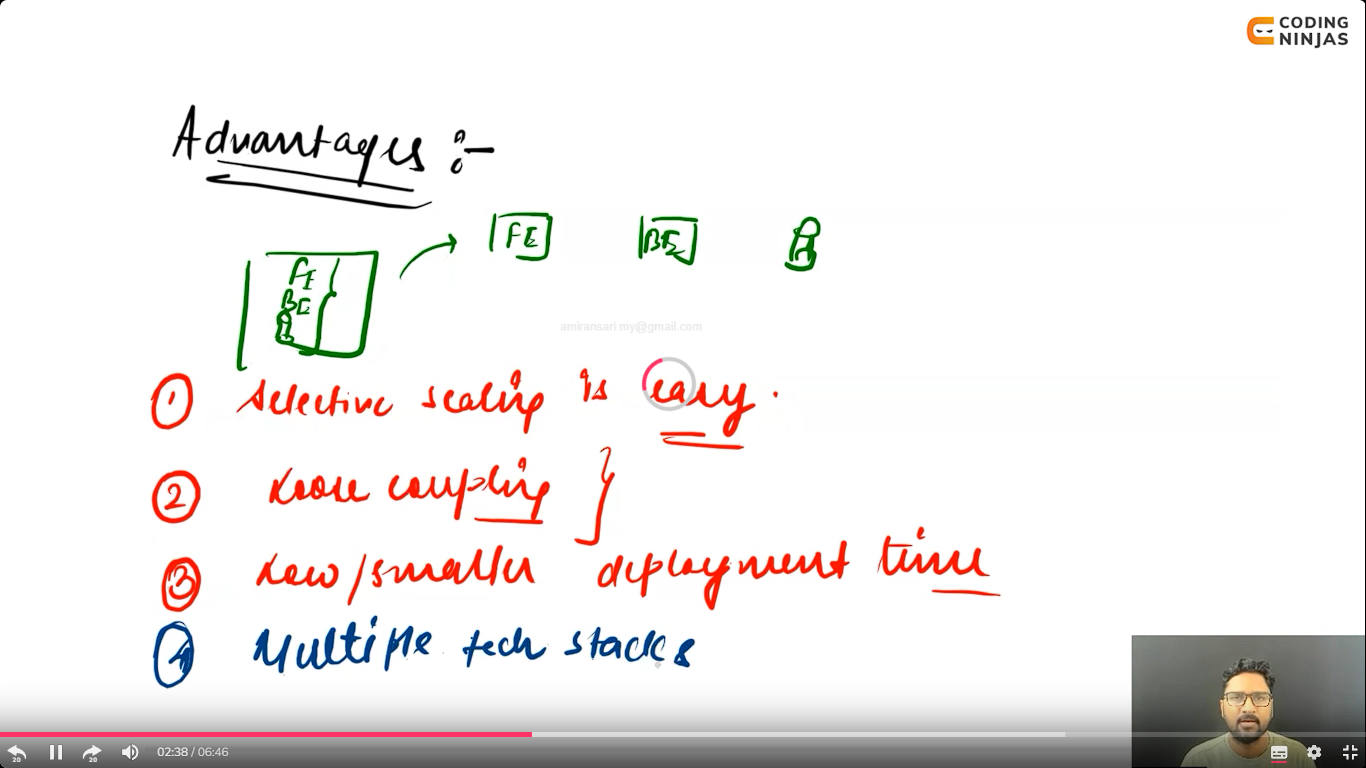 CODING
NINJAS
Advantages :-
FE BE
FE
BE
amiransari.my@gmail.com
① Selective scaling is easy.
② Loose coupling
③ Low/smaller deployment time
④ Multiple tech stacks
20 20 02:38 / 06:46